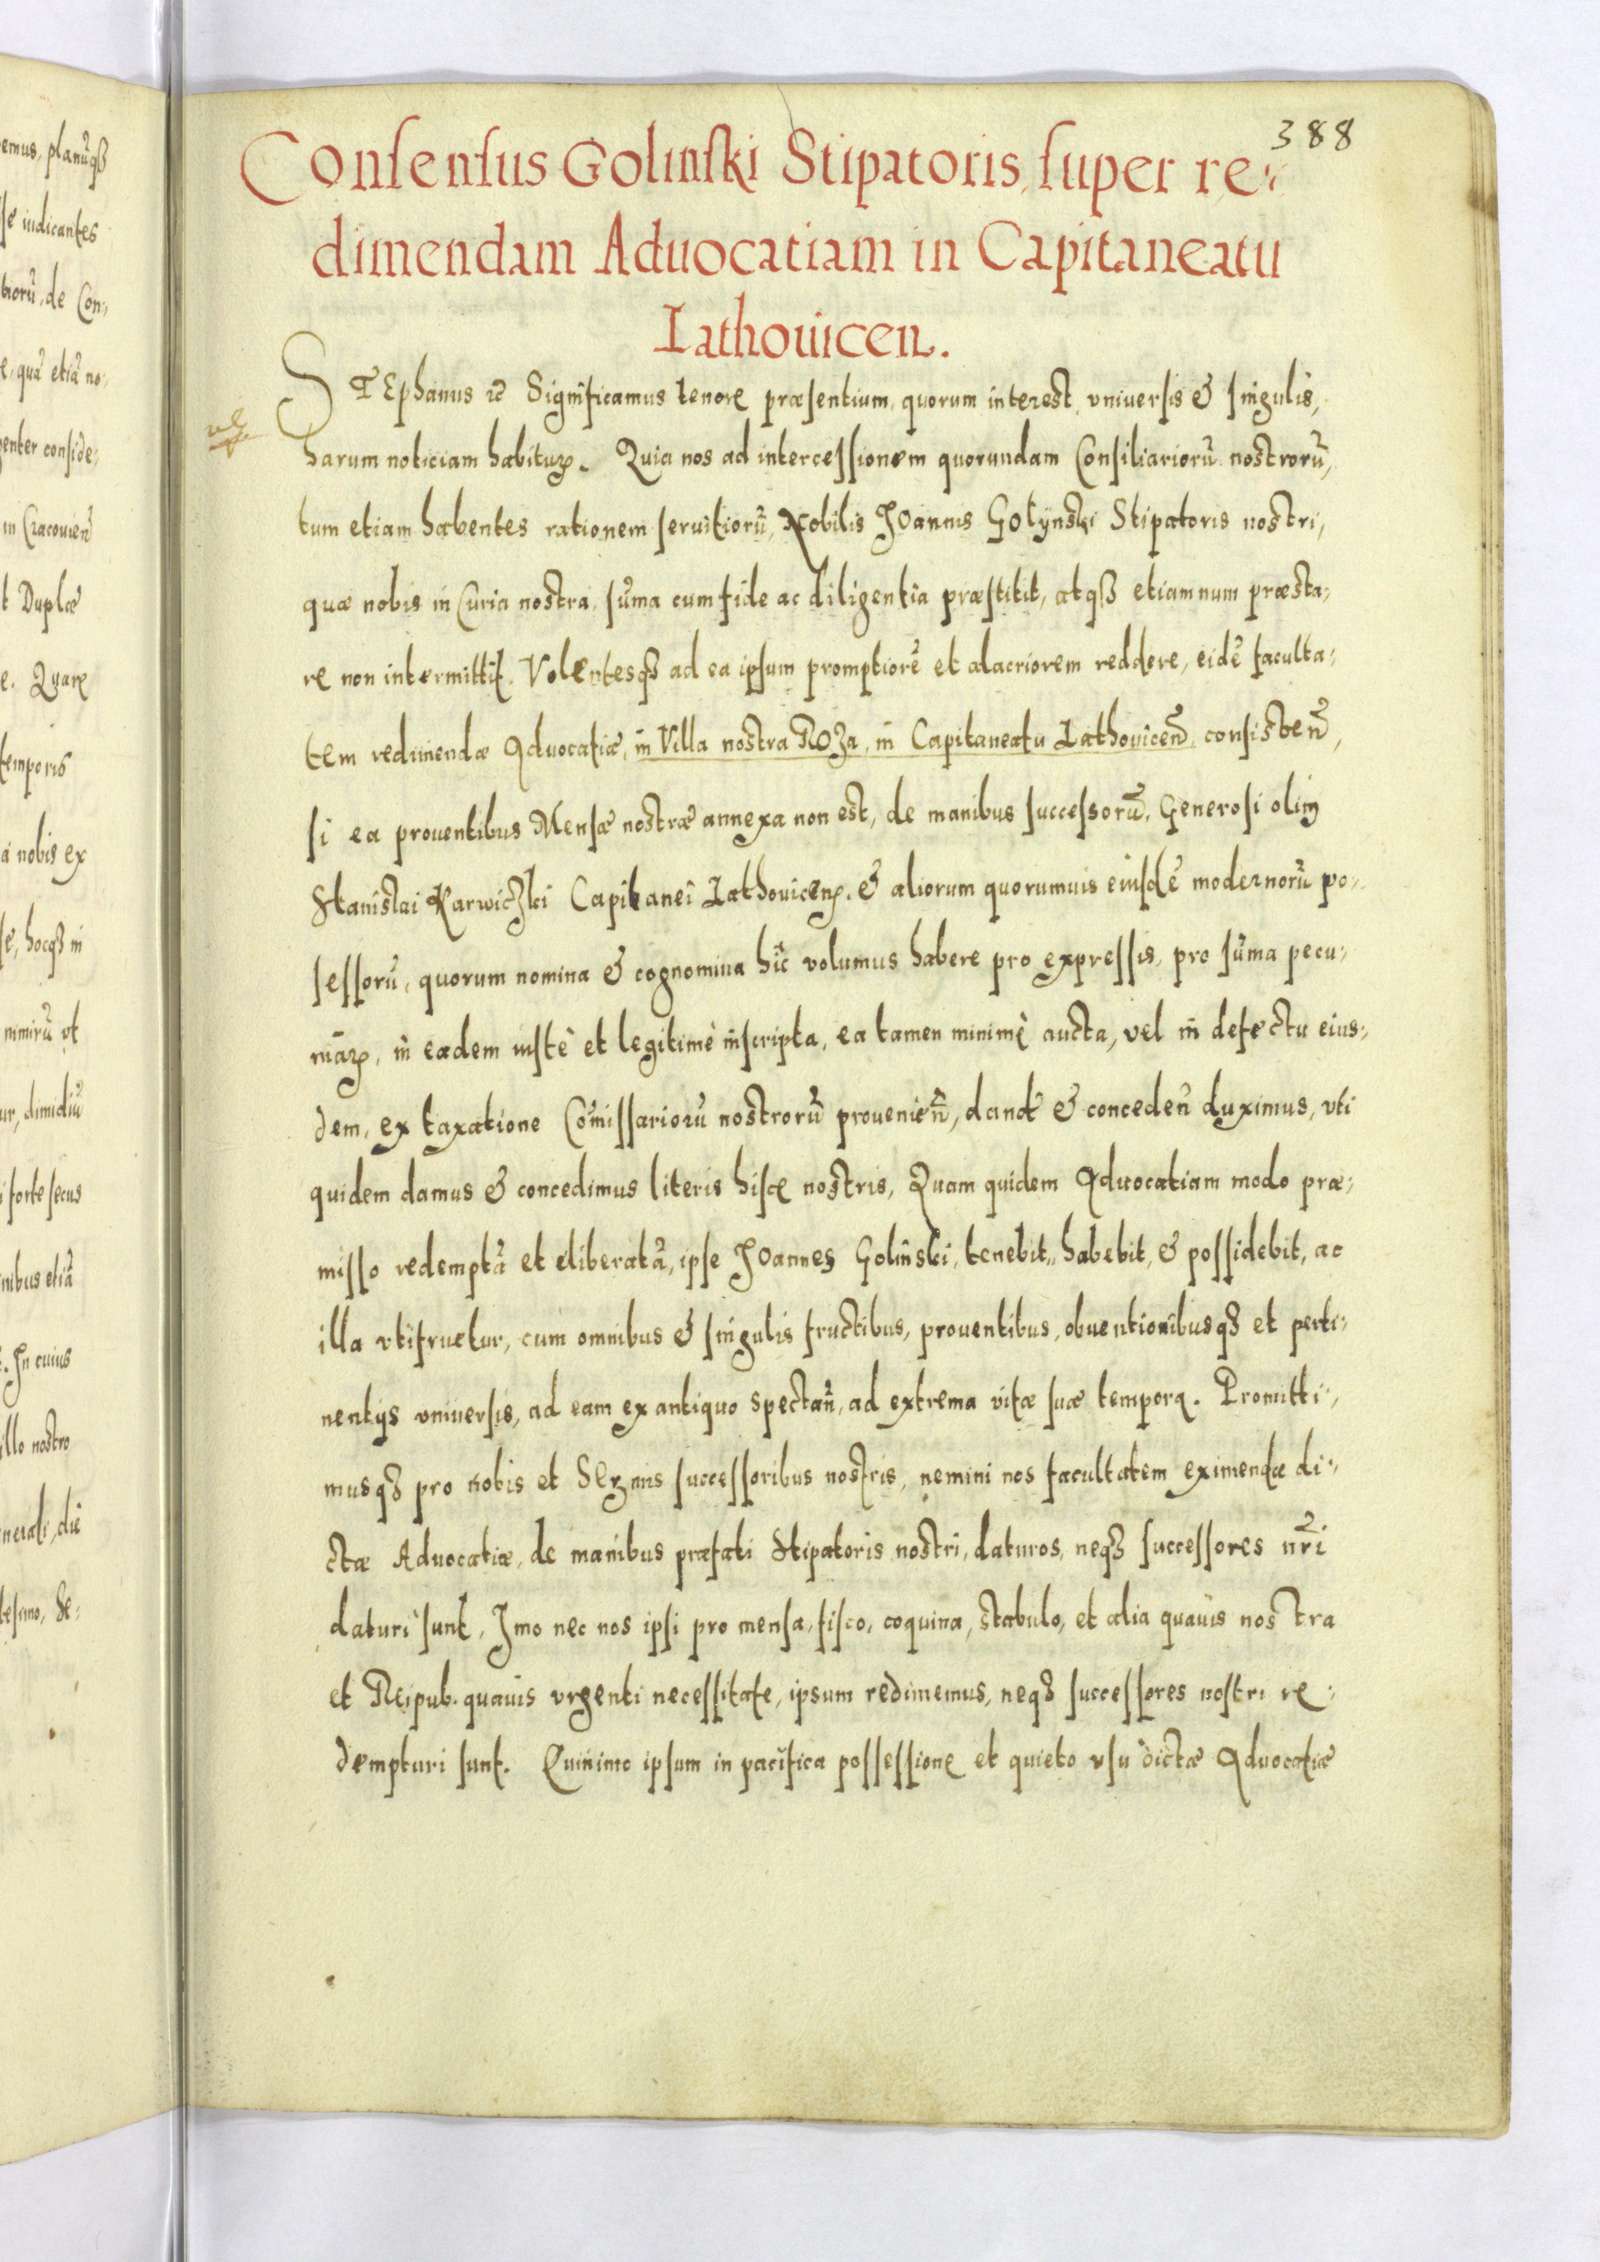 388
Consensus Golinski Stipatoris, super re-
dimendam Aduocatiam in Capitaneatu
Lathouicen.
STEphanus rc Significamus tenore præsentium, quorum interest vniuersis & singulis,
harum noticiam habitur. Quia nos ad intercessionem quorundam Consiliariorū nostrorū,
tum etiam habentes rationem seruitiorū, Nobilis Joannis Golynski Stipatoris nostri,
quæ nobis in Curia nostra, sūma cum fide ac diligentia præstitit, atq3 etiamnum præsta-
re non intermittit. Volentesq3 ad ea ipsum promptiorē et alacriorem reddere, eidē faculta-
tem redimendæ Aduocatiæ, in Villa nostra ROza, in Capitaneatu Lathouicen̄, consisten̄,
si ea prouentibus Mensæ nostræ annexa non est, de manibus successorū, Generosi olim
Stanislai Karwiczki Capitanei Lathouicen. & aliorum quorumuis eiusdē modernorū po-
sessorū, quorum nomina & cognomina hic volumus habere pro expressis, pro sūma pecu-
niar, in eadem iustè et legitimè inscripta, ea tamen minimè aucta, vel in defectu eius-
dem, ex taxatione Com̄issariorū nostrorū prouenien̄, dand & conceden̄ duximus, vti
quidem damus & concedimus literis hisce nostris, Quam quidem Aduocatiam modo præ-
misso redemptā et eliberatā, ipse Joannes Golinski, tenebit, habebit, & possidebit, ac
illa vtifruetur, cum omnibus & singulis fructibus, prouentibus, obuentionibusq3 et perti-
nentijs vniuersis, ad eam ex antiquo spectan̄, ad extrema vitæ suæ tempora. Promitti-
musq3 pro nobis et Sernis successoribus nostris, nemini nos facultatem eximendæ di-
ctæ Aduocatiæ, de manibus præfati Stipatoris nostri, daturos, neq3 successores nr̄i
daturi sunt, Jmo nec nos ipsi pro mensa, fisco, coquina, stabulo, et alia quauis nostra
et Reipub. quauis vrgenti necessitate, ipsum redimemus, neq3 successores nostri re-
dempturi sunt. Quinimo ipsum in pacifica possessione et quieto vsu dictæ Aduocatiæ